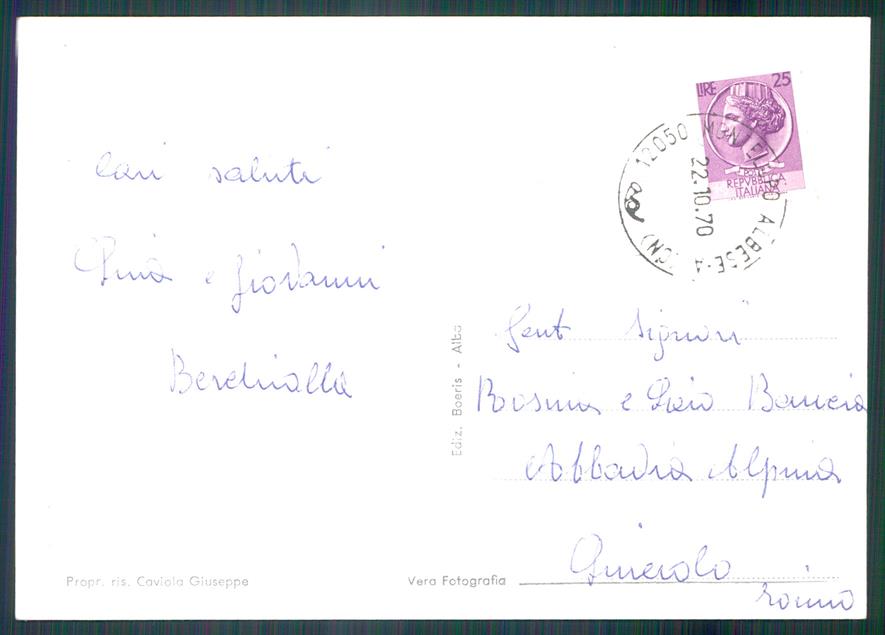 LIRE 25
POSTE
REPVBBLICA
ITALIANA
12050 MONTELUPO ALBESE · A (CN)
22.10.70
Cari saluti
Pina e Giovanni
Berchialla
Gent Signori
Rosina e
Abbadia Alpina
Pinerolo
Torino
Ediz. Boeris - Alba
Propr. ris. Caviola Giuseppe
Vera Fotografia